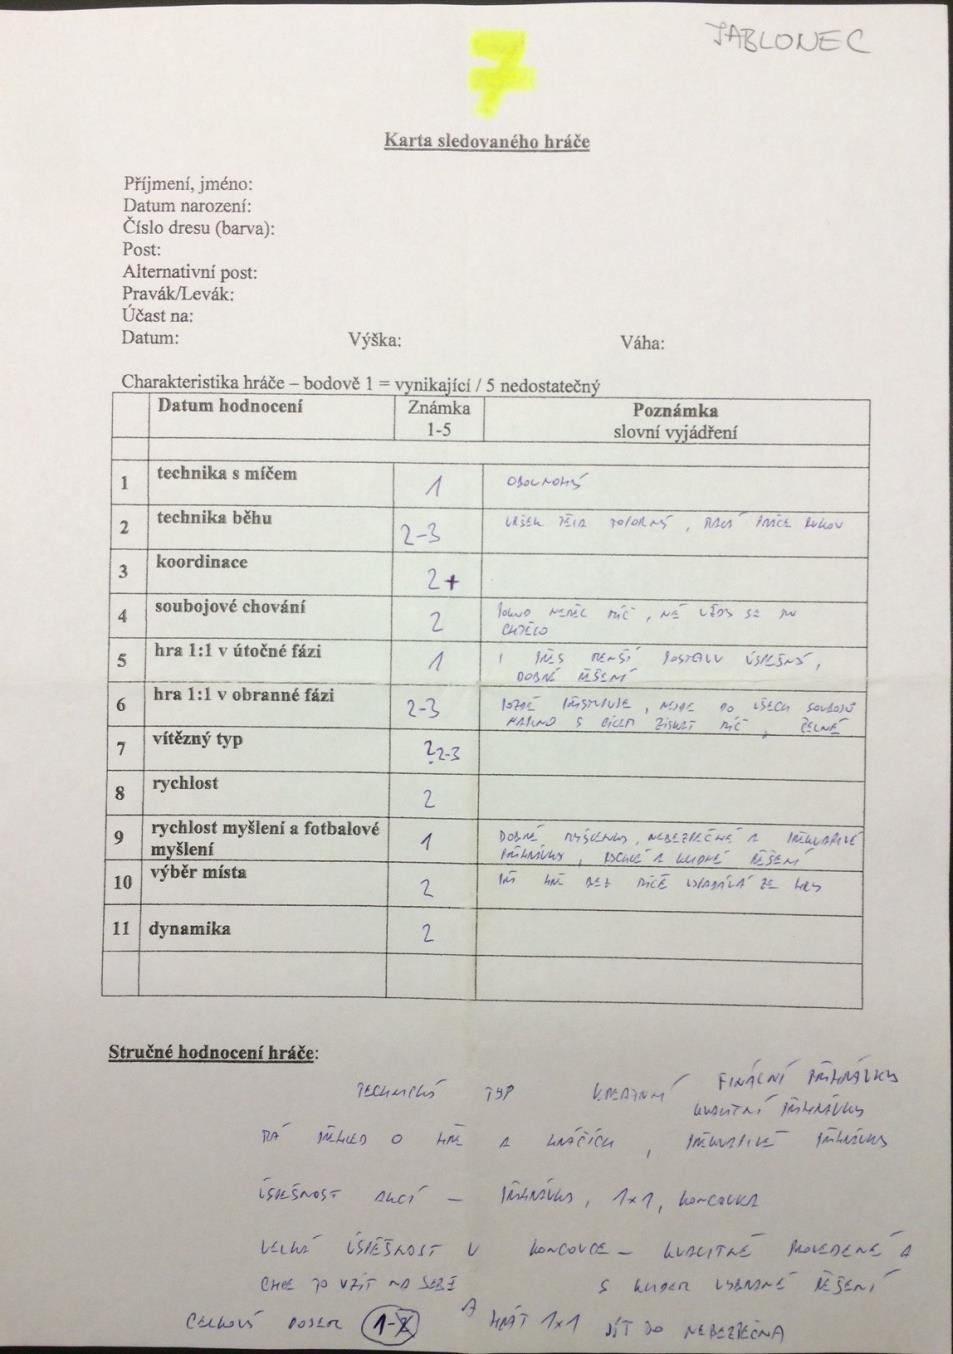 7
JABLONEC
Karta sledovaného hráče
Příjmení, jméno:
Datum narození:
Číslo dresu (barva):
Post:
Alternativní post:
Pravák/Levák:
Účast na:
Datum: Výška: Váha:
Charakteristika hráče – bodově 1 = vynikající / 5 nedostatečný
Datum hodnocení Známka 1-5 Poznámka slovní vyjádření
1 technika s míčem 1 OBOUNOHÝ
2 technika běhu 2-3 VRŠEK TĚLA TOPORNÝ, PRÁCE RUKOU
3 koordinace 2+
4 soubojové chování 2 POKUD NEMĚL MÍČ, NE VŽDY SE MU
CHTĚLO
5 hra 1:1 v útočné fázi 1 I PŘES MENŠÍ POSTAVU ÚSPĚŠNÝ,
DOBRÉ ŘEŠENÍ
6 hra 1:1 v obranné fázi 2-3 POZDĚ PŘISTUPUJE, NEJDE DO VŠECH SOUBOJŮ
NAPLNO S CÍLEM ZÍSKAT MÍČ,
7 vítězný typ 2-3
8 rychlost 2
9 rychlost myšlení a fotbalové myšlení 1 DOBRÉ MYŠLENKY, NEBEZPEČNÉ A PŘEKVAPIVÉ
PŘIHRÁVKY, RYCHLÉ A KLIDNÉ ŘEŠENÍ
10 výběr místa 2 PŘI HŘE BEZ MÍČE VYPADÁVÁ ZE HRY
11 dynamika 2
Stručné hodnocení hráče:
TECHNICKÝ TYP KREATIVNÍ FINÁLNÍ PŘIHRÁVKY
KVALITNÍ PŘIHRÁVKY
MÁ PŘEHLED O HŘE A HRÁČÍCH, PŘEKVAPIVÉ PŘIHRÁVKY
ÚSPĚŠNOST AKCÍ – PŘIHRÁVKY, 1x1, KONCOVKA
VELKÁ ÚSPĚŠNOST V KONCOVCE – KVALITNĚ PROVEDENÉ A
CHCE TO VZÍT NA SEBE S KLIDEM VYBRANÉ ŘEŠENÍ
CELKOVÝ DOJEM 1-2 A HRÁT 1x1 JÍT DO NEBEZPEČNA